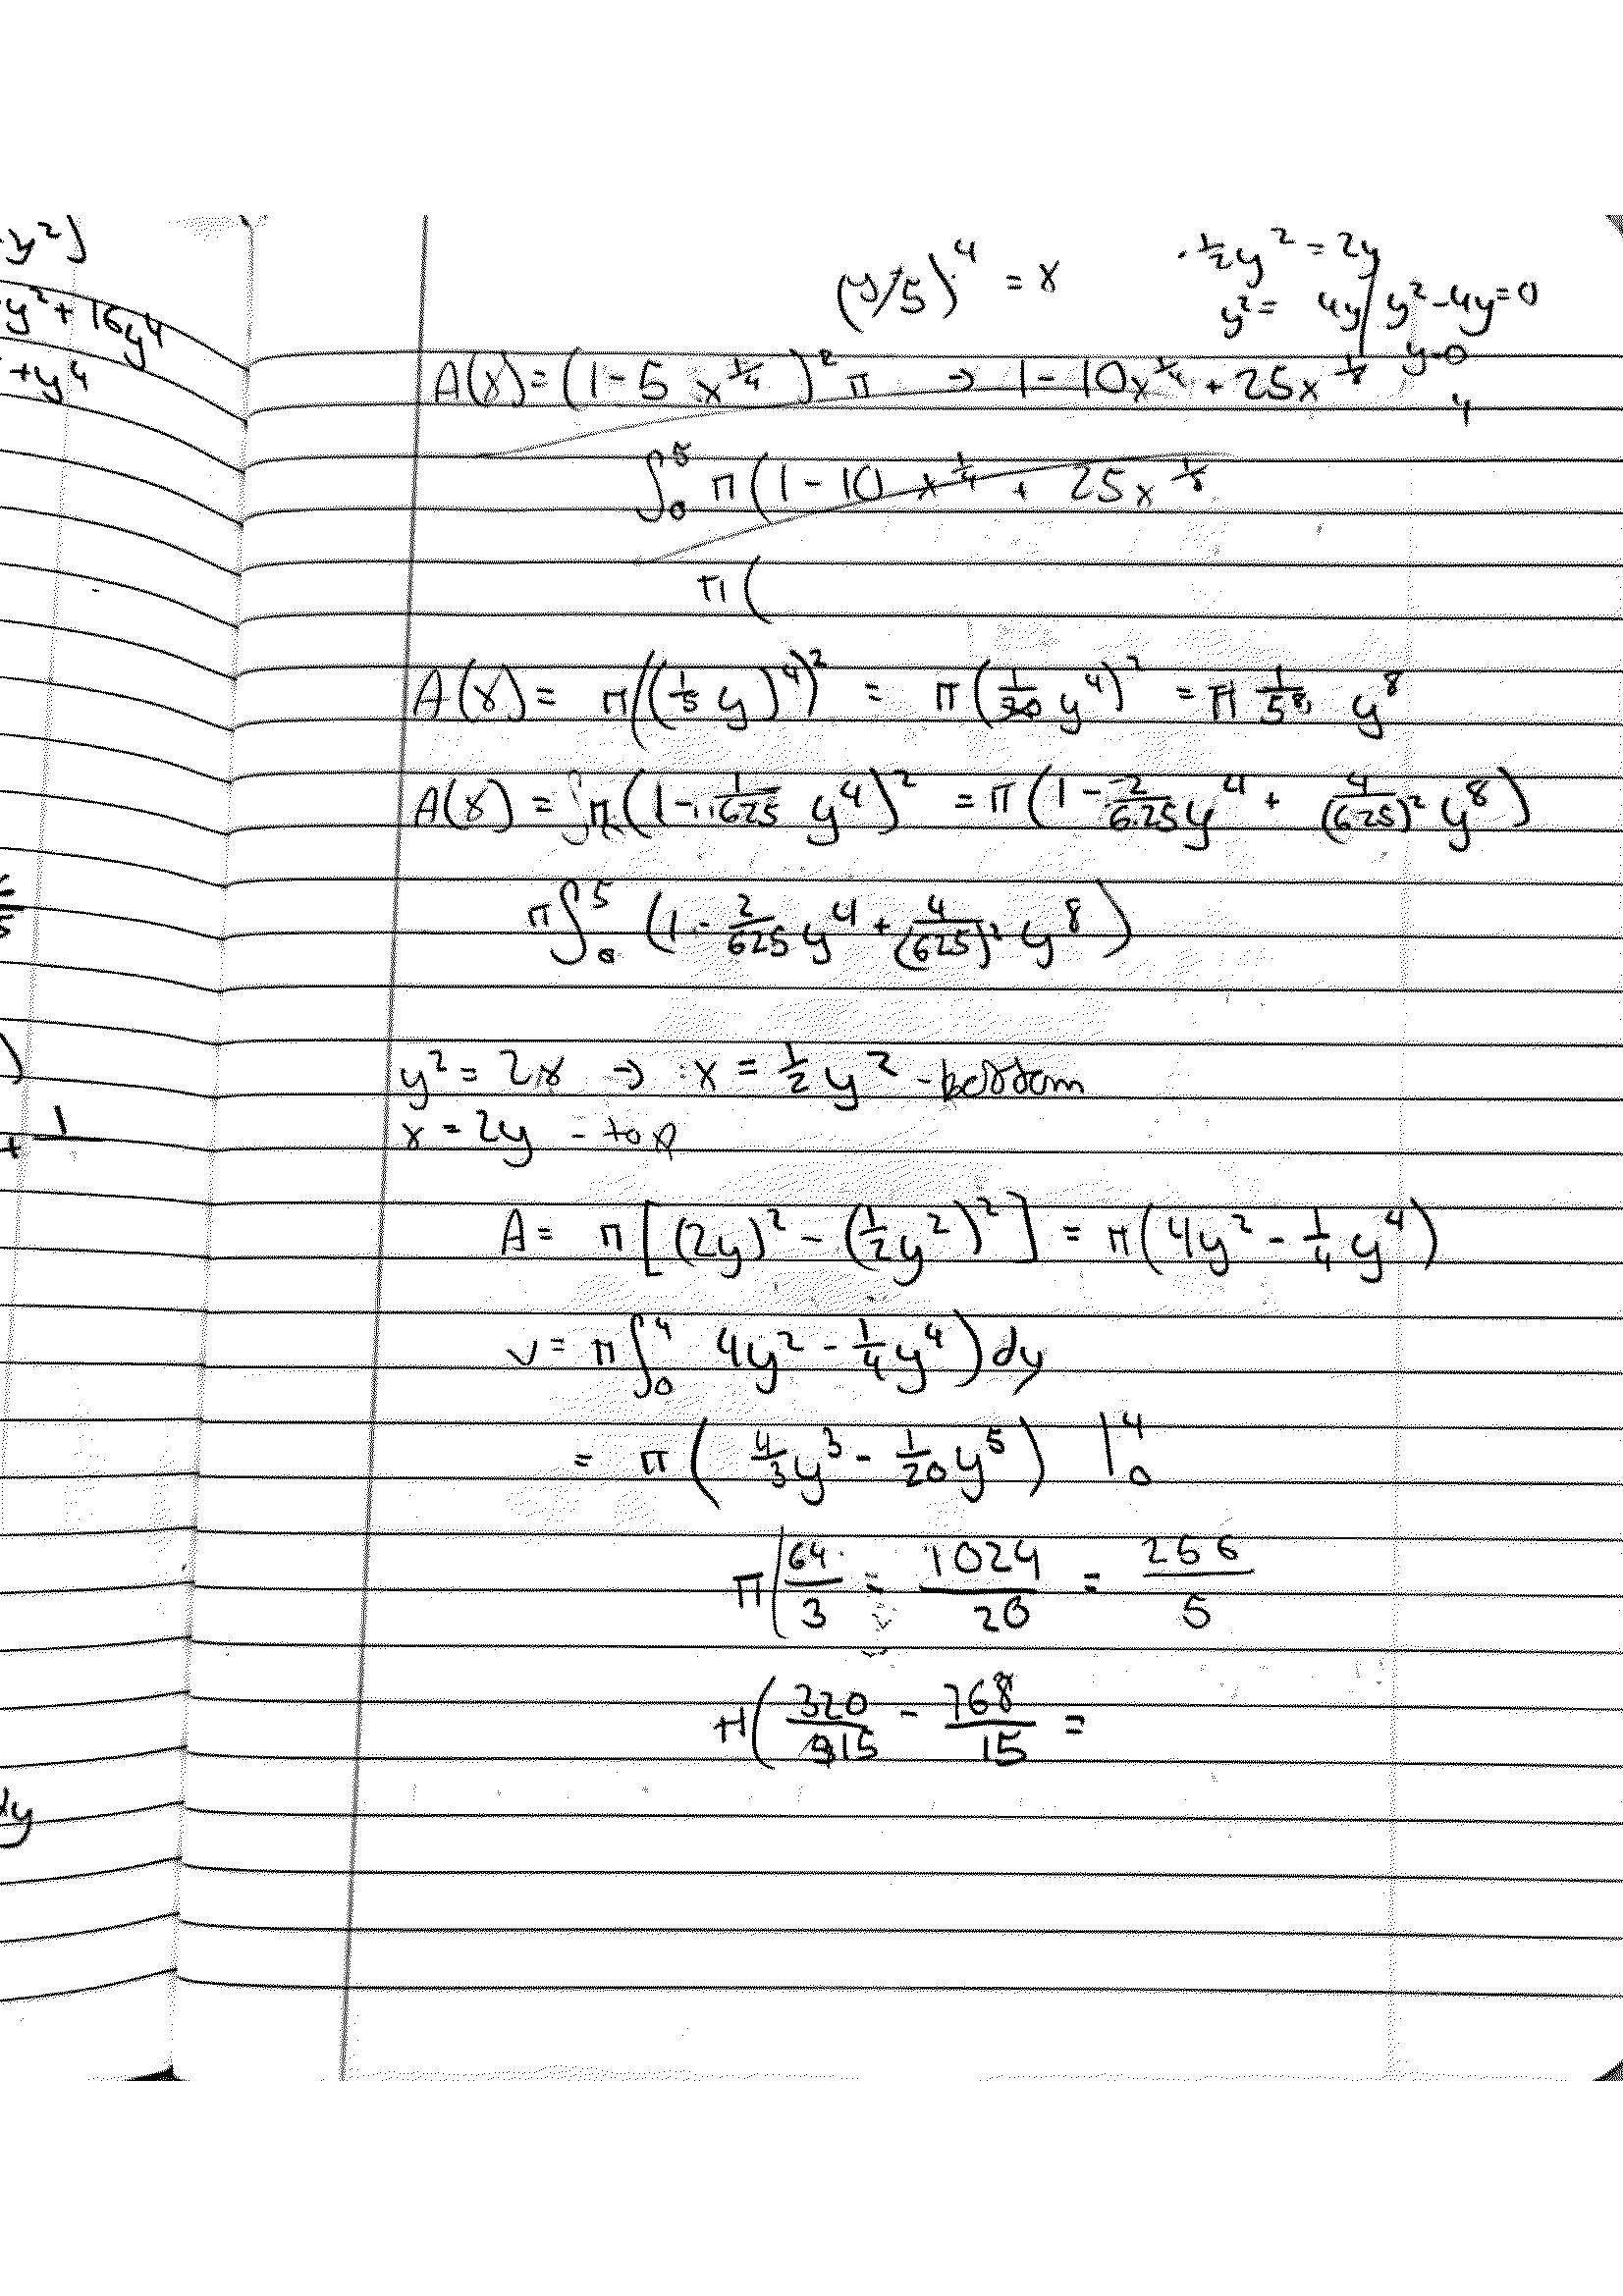 -y²)
-y² + 16y⁴
+y⁴
+ 1
dy
(y/5)⁴ = x
½y² = 2y
y² = 4y / y² - 4y = 0
y=0
4
A(x) = (1 - 5 x^¼)² π → 1 - 10x^¼ + 25x^⅛
∫₀⁵ π(1 - 10 x^¼ + 25x^⅛
π(
A(x) = π((⅕ y)⁴)² = π(1/20 y⁴)² = π 1/5⁸ y⁸
A(x) = ∫π(1 - 1/625 y⁴)² = π(1 - 2/625 y⁴ + 4/(625)² y⁸)
π∫₀⁵ (1 - 2/625 y⁴ + 4/(625)² y⁸)
y² = 2x → x = ½ y² - bottom
x = 2y - top
A = π[(2y)² - (½y²)²] = π(4y² - ¼y⁴)
v = π∫₀⁴ 4y² - ¼y⁴) dy
= π(4/3 y³ - 1/20 y⁵) |₀⁴
π(64/3 - 1024/20 = 256/5
π(320/15 - 768/15 =